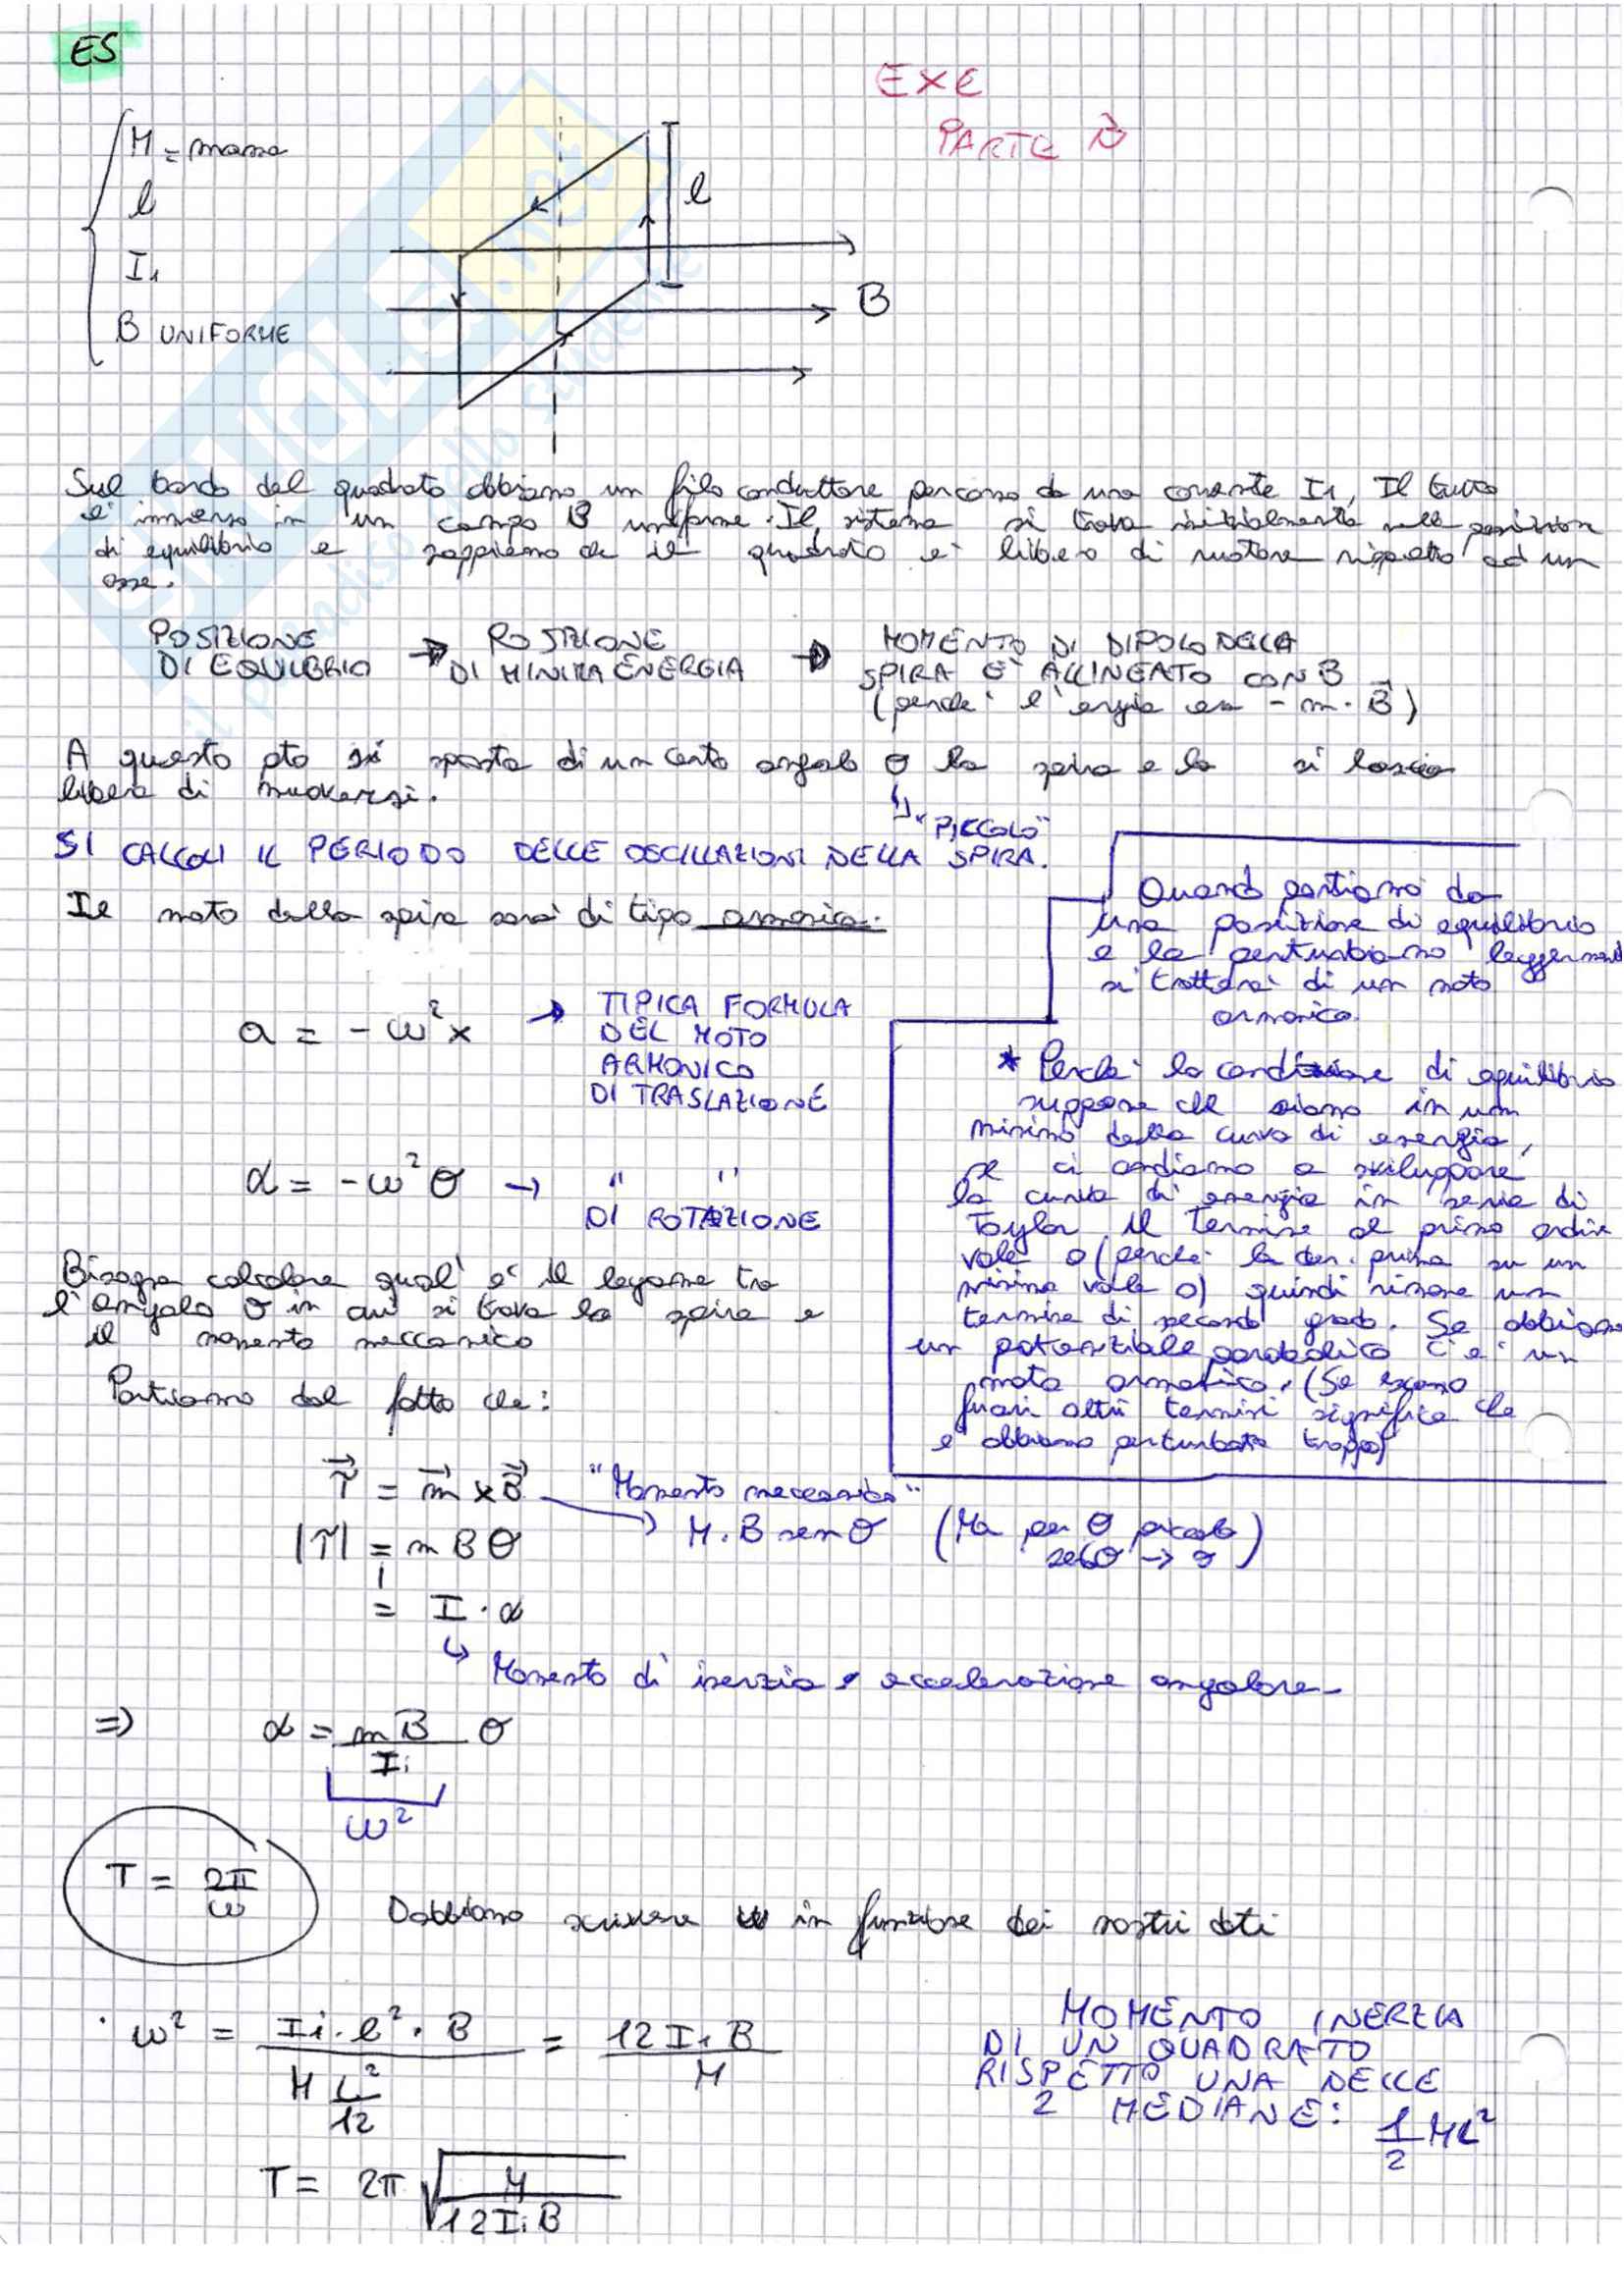 ES
EXE
PARTE B
M = massa
l
I₁
B UNIFORME
l
B
Sul bordo del quadrato abbiamo un filo conduttore percorso da una corrente I₁, Il tutto
è immerso in un campo B uniforme. Il sistema si trova inizialmente nella posizione
di equilibrio e sappiamo che il quadrato è libero di ruotare rispetto ad un
asse.
POSIZIONE DI EQUILIBRIO → POSIZIONE DI MINIMA ENERGIA → MOMENTO DI DIPOLO DELLA
SPIRA E' ALLINEATO CON B
(perché l'ergia era - m · B⃗)
A questo pto si sposta di un certo angolo θ la spira e la si lascia
libera di muoversi.
↳ "PICCOLO"
SI CALCOLI IL PERIODO DELLE OSCILLAZIONI DELLA SPIRA.
Il moto della spira sarà di tipo armonico.
a = - ω² x → TIPICA FORMULA
DEL MOTO
ARMONICO
DI TRASLAZIONE
α = - ω² θ → " "
DI ROTAZIONE
Quando partiamo da
una posizione di equilibrio
e la perturbiamo leggermente
si tratterà di un moto
armonico.
* Perché la condizione di equilibrio
suppone che siamo in un
minimo della curva di energia,
se ci andiamo a sviluppare
la curva di energia in serie di
Taylor il termine al primo ordine
vale 0 (perché la der. prima su un
minimo vale 0) quindi rimane un
termine di secondo grado. Se abbiamo
un potenziale parabolico c'è un
moto armonico. (Se escono
fuori altri termini significa che
abbiamo perturbato troppo)
Bisogna calcolare qual' è il legame tra
l'angolo θ in cui si trova la spira e
il momento meccanico
Partiamo dal fatto che:
τ⃗ = m⃗ x B⃗ "Momento meccanico"
→ M·B sen θ (Ma per θ piccolo
senθ → θ)
|τ| = m B θ
= I · α
↳ Momento di inerzia e accelerazione angolare
=> α = mB/Iᵢ θ
ω²
T = 2π/ω
Dobbiamo scrivere ω in funzione dei nostri dati
ω² = I₁·l²·B / M L²/12 = 12 I₁ B / M
MOMENTO INERZIA
DI UN QUADRATO
RISPETTO UNA DELLE
2 MEDIANE: 1/2 ML²
T = 2π √(M / 12 I₁ B)